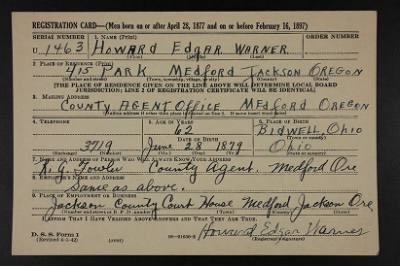 REGISTRATION CARD—(Men born on or after April 28, 1877 and on or before February 16, 1897)
SERIAL NUMBER 1. NAME (Print) ORDER NUMBER
U 1463 HOWARD EDGAR WARNER
2. PLACE OF RESIDENCE (Print)
415 PARK MEDFORD JACKSON OREGON
(Number and street) (Town, township, village, or city) (County) (State)
[THE PLACE OF RESIDENCE GIVEN ON THE LINE ABOVE WILL DETERMINE LOCAL BOARD
JURISDICTION; LINE 2 OF REGISTRATION CERTIFICATE WILL BE IDENTICAL]
3. MAILING ADDRESS
COUNTY AGENT OFFICE MEDFORD OREGON
4. TELEPHONE 5. AGE IN YEARS 6. PLACE OF BIRTH
62 BIDWELL, Ohio
DATE OF BIRTH
3719 June 28 1879 Ohio
7. NAME AND ADDRESS OF PERSON WHO WILL ALWAYS KNOW YOUR ADDRESS
R. G. Fowler County Agent. Medford Ore
8. EMPLOYER'S NAME AND ADDRESS
Same as above.
9. PLACE OF EMPLOYMENT OR BUSINESS
Jackson County Court House Medford Jackson Ore
(Number and street or R. F. D. number) (Town) (County) (State)
I AFFIRM THAT I HAVE VERIFIED ABOVE ANSWERS AND THAT THEY ARE TRUE.
D. S. S. Form 1 Howard Edgar Warner
(Revised 4-1-42) (Registrant's signature)